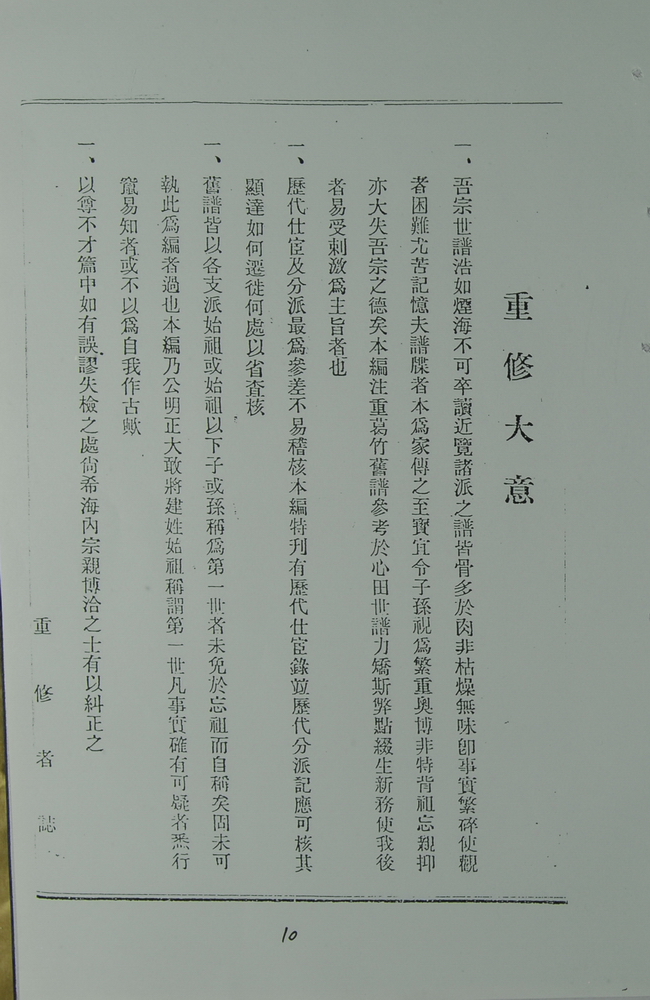 重修大意
一、吾宗世譜浩如煙海不可卒讀近覽諸派之譜皆骨多於肉非枯燥無味卽事實繁碎使觀
者困難尤苦記憶夫譜牒者本爲家傳之至寶宜令子孫視爲繁重奥博非特背祖忘親抑
亦大失吾宗之德矣本編注重葛竹舊譜參考於心田世譜力矯斯弊點綴生新務使我後
者易受刺激爲主旨者也
一、歷代仕宦及分派最爲參差不易稽核本編特刊有歷代仕宦錄竝歷代分派記應可核其
顯達如何遷徙何處以省查核
一、舊譜皆以各支派始祖或始祖以下子或孫稱爲第一世者未免於忘祖而自稱矣固未可
執此爲編者過也本編乃公明正大敢將建姓始祖稱謂第一世凡事實確有可疑者悉行
竄易知者或不以爲自我作古歟
一、以尊不才篇中如有誤謬失檢之處尙希海內宗親博洽之士有以糾正之
重修者誌
10